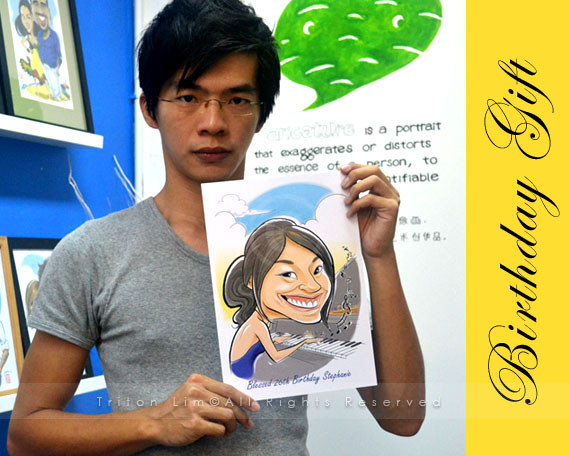 Caricature is a portrait
that exaggerates or distorts
the essence of a person, to
作品.
Blessed 26th Birthday Stephanie
Triton Lim©All Rights Reserved
Birthday Gift